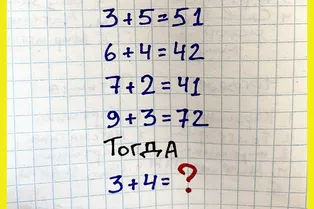 3+5=51
6+4=42
7+2=41
9+3=72
ТогДА
3+4=?